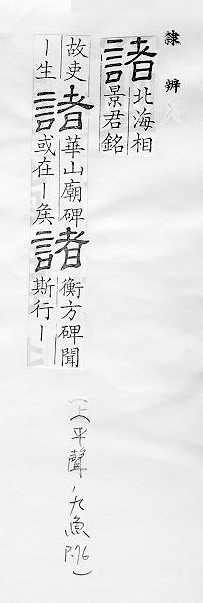 隸辨
諸
北海相
景君銘
故吏
｜生
諸
華山廟碑
或在｜矦
諸
衡方碑聞
斯行｜
(上)平聲,九魚 P.76)